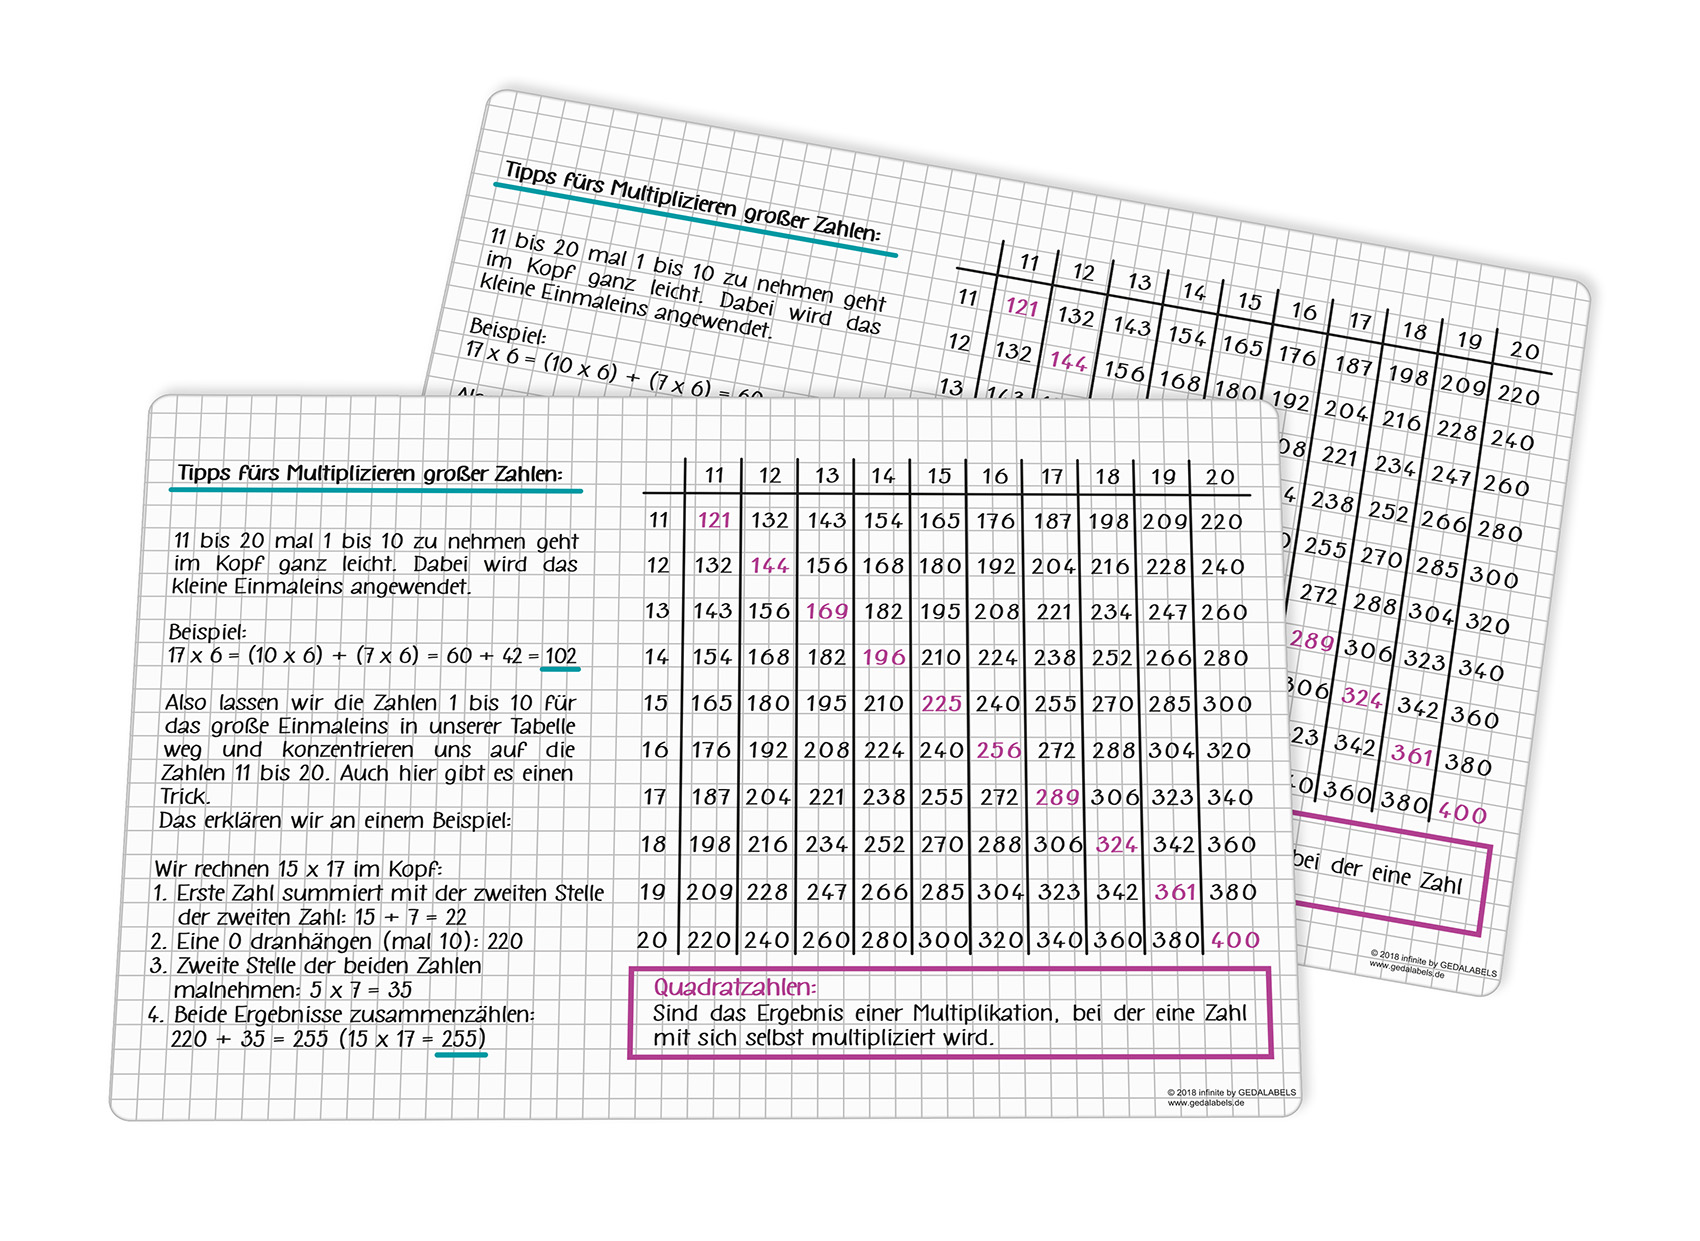 Tipps fürs Multiplizieren großer Zahlen:
11 bis 20 mal 1 bis 10 zu nehmen geht
im Kopf ganz leicht. Dabei wird das
kleine Einmaleins angewendet.
Beispiel:
17 x 6 = (10 x 6) + (7 x 6) = 60
11 12 13 14 15 16 17 18 19 20
11 121 132 143 154 165 176 187 198 209 220
12 132 144 156 168 180 192 204 216 228 240
13 221 234 247 260
238 252 266 280
255 270 285 300
272 288 304 320
289 306 323 340
306 324 342 360
342 361 380
360 380 400
bei der eine Zahl
© 2018 infinite by GEDALABELS
www.gedalabels.de
Tipps fürs Multiplizieren großer Zahlen:
11 bis 20 mal 1 bis 10 zu nehmen geht
im Kopf ganz leicht. Dabei wird das
kleine Einmaleins angewendet.
Beispiel:
17 x 6 = (10 x 6) + (7 x 6) = 60 + 42 = 102
Also lassen wir die Zahlen 1 bis 10 für
das große Einmaleins in unserer Tabelle
weg und konzentrieren uns auf die
Zahlen 11 bis 20. Auch hier gibt es einen
Trick.
Das erklären wir an einem Beispiel:
Wir rechnen 15 x 17 im Kopf:
1. Erste Zahl summiert mit der zweiten Stelle
der zweiten Zahl: 15 + 7 = 22
2. Eine 0 dranhängen (mal 10): 220
3. Zweite Stelle der beiden Zahlen
malnehmen: 5 x 7 = 35
4. Beide Ergebnisse zusammenzählen:
220 + 35 = 255 (15 x 17 = 255)
11 12 13 14 15 16 17 18 19 20
11 121 132 143 154 165 176 187 198 209 220
12 132 144 156 168 180 192 204 216 228 240
13 143 156 169 182 195 208 221 234 247 260
14 154 168 182 196 210 224 238 252 266 280
15 165 180 195 210 225 240 255 270 285 300
16 176 192 208 224 240 256 272 288 304 320
17 187 204 221 238 255 272 289 306 323 340
18 198 216 234 252 270 288 306 324 342 360
19 209 228 247 266 285 304 323 342 361 380
20 220 240 260 280 300 320 340 360 380 400
Quadratzahlen:
Sind das Ergebnis einer Multiplikation, bei der eine Zahl
mit sich selbst multipliziert wird.
© 2018 infinite by GEDALABELS
www.gedalabels.de